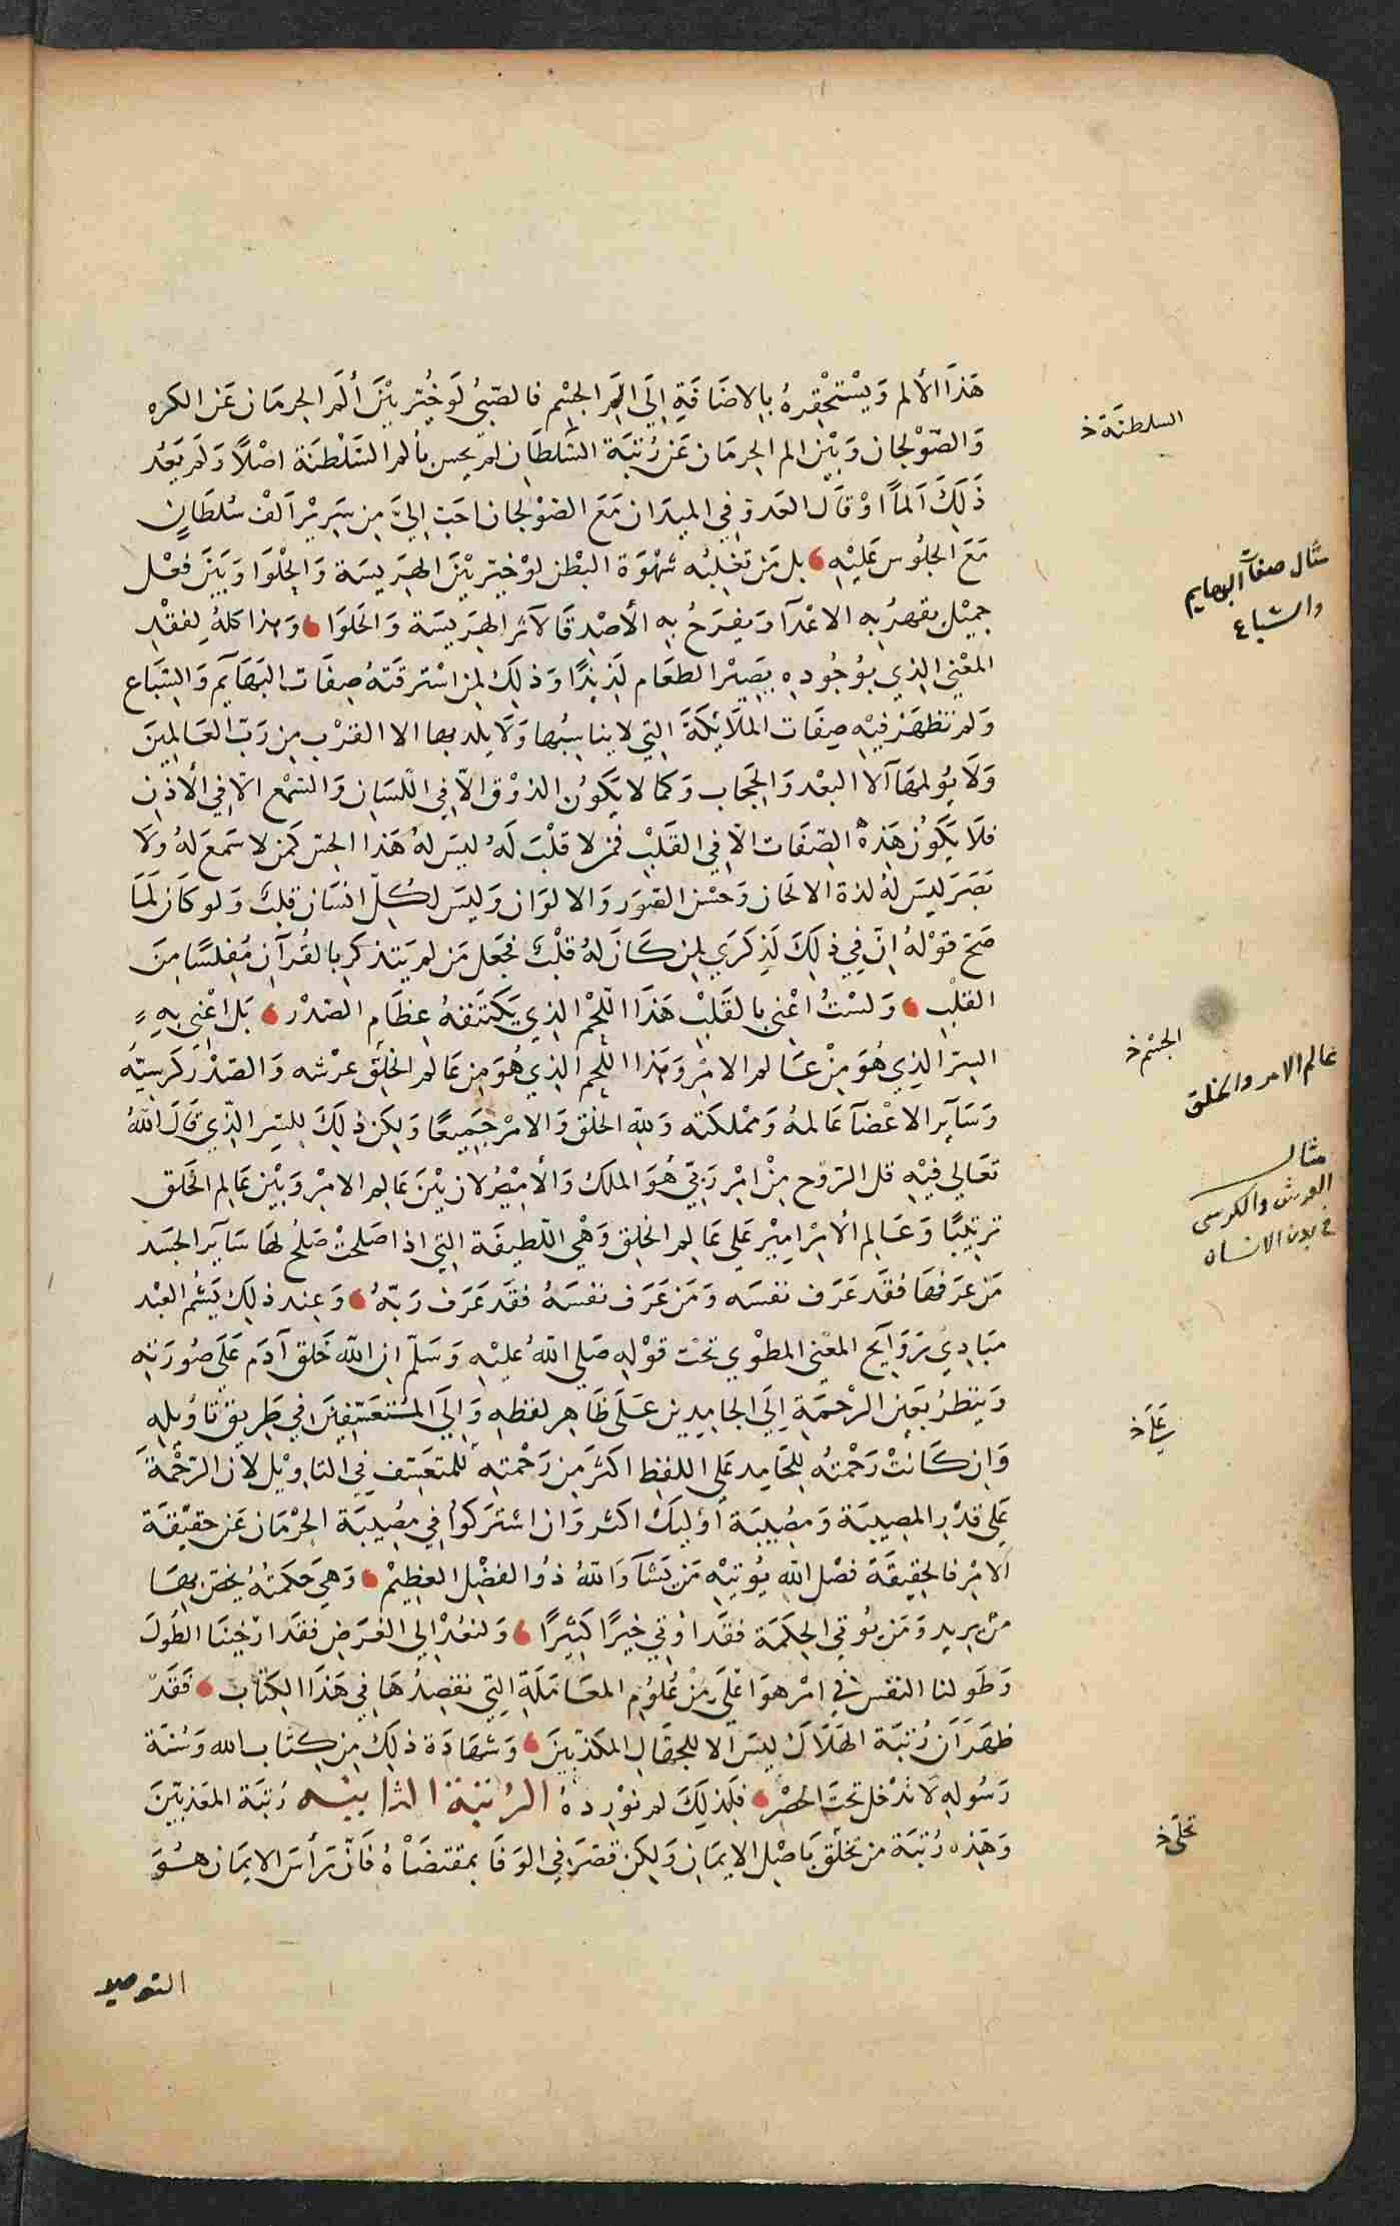 هَذَا الألم وَيسْتحْقِرهُ بالاضَافَةِ إلَى أَلَمِ الجِسْم فالصّبيُ لَوخُيّر بيْنَ ألَم الحِرمَان عَن الكره
وَالصّوْلجان وَبيْن الم الحِرمَان عَن رُتبَة السُّلطَان لمْ يحس بألم السَّلْطنَة اصْلاً وَلَم يَعُد
ذَلِكَ اَلماً اوْ قَال العَدو في الميدَان مَعَ الصّوْلجان احَبّ إليَّ مِن سَرِيْر اَلفْ سُلطَانٍ
مَعَ الجلُوس عَليْهِ بل مَن تغْلبُه شهْوَة البَطْن لوْ خيّر بيْنَ الهَرِيسَة وَالحلْوَا وَبَيَنَ فعْل
جميْلٍ يقهرُ بِهِ الاعْدَآ وَيفرَحُ بِه الأصْدِقا لآثر الهَريسَة وَالحَلوَا وَهذا كلهُ لِفقْدِ
المعْني الذِي بوُجُودِهِ يَصِيْر الطعَام لَذيذًا وَذلِكَ لِمن اسْترقَتهُ صِفَات البَهَآيم وَالسّبَاع
وَلم تظهَرْ فيْهِ صِفَات الملَائكَةَ التِي لا يناسِبُها وَلَا يلد بها الا القرْب مِن رَبّ العَالمِينَ
وَلَا يُولمهَا آلا البعْد وَالحجَاب وَكما لا يكَوُن الذوْق الّا فِي اللّسَانِ وَالسّمْع الّا فِي الأذُنِ
فلاَ يَكوُن هَذِهْ الصّفَات الّا فِي القَلبْ فمَن لا قلْبَ لَهُ ليسَ لهُ هَذا الحِسّ كَمن لا سَمعَ لهُ وَلَا
بَصَرَ ليسَ لهُ لذة الالحَان وَحسْن الصّوَر وَالالوَان وَليسَ لِكُلّ انسَان قلبٌ وَلو كَانَ لَمَا
صَحّ قوْلهُ انّ فِي ذلِكَ لَذِكرَي لِمن كَانَ لَهُ قلْبٌ فجَعل مَن لم يَتذكر بالقُرآن مُفِلسًا مِنَ
القلْبِ وَلسْتُ اعْنِي بالقَلبْ هَذَا اللّحْم الذِي يَكتَنفهُ عِظَام الصّدْر بَل اعْنِي بِهِ
السِرّ الذِي هُوَ مِنْ عَالم الامْر وَهذا اللّحم الذِي هُوَ مِن عَالم الخلْق عرْشه وَالصّدْر كَرسِيّهُ
وَسَآيِر الاعْضآ عَالمهُ وَممْلكَته وَلِلّهِ الخلْق وَالامْر جَميعًا وَلكِن ذلِكَ للسِر الذِّي قَالَ اللّهُ
تعَالي فيْهِ قل الرّوح مِنْ امْرِ رَبّي هُوَ الملك وَالأمِيْر لان بيْنَ عَالم الامْرِ وَبيْن عَالم الخَلق
ترتيبًا وَعَالم الأمْر اميْر عَلي عَالم الخلِق وَهْي اللّطيفَة التِي اذا صَلحتْ صَلُح لهَا سَآيَر الجسَد
مَن عَرَفهَا فقَد عَرَف نفسَه وَمَن عَرَف نفسَهُ فقَد عَرَف رَبّهُ وَعِند ذلِكَ يَشُم العبْد
مبَادِيُ رَوَآيح المعْني المطْوي تحْت قوْلهِ صَلّي اللّهُ عليْهِ وَسَلّم ان اللّه خَلق آدَم عَلَى صُورَتهِ
وَينظرُ بعَين الرحْمَة إلَي الجامِدِين عَلَى ظَاهِر لفظهِ وَإلَى المُتعَسّفِينَ فِي طَرِيق تأوُيلهِ
وَان كَانَتْ رَحْمتُه للجَامِد عَلي اللفظِ اكَثر مِن رَحْمتهِ للمتعَسّف فِي التاوِيْل لان الرَحْمَةَ
عَلي قدْر المصِيبَة وَمصِيبَة أوْليكَ اكثر وَان اشْترَكوُا فِي مصِيبَة الحِرْمَان عَن حقِيْقَة
الامْر فالحقِيقَة فضْل اللّهِ يُوتيْهِ مَن يَشآ وَاللّهُ ذُو الفضْل العظِيْمْ وَهِيَ حكمَتهُ يختصّ بهَا
منْ يريد وَمَن يُوتي الحِكمَة فقَد أوْتي خيرًا كَثيْرًا وَلنعُدْ إلي الغَرَض فقَد ارْخينَا الطُولَ
وَطَولنا النفَس فِي امْر هوَ اعْلَى مِنْ عُلوُم المعَامَلَةِ التِي نقصِدُهَا فِي هَذَا الكِتَاب فقَدْ
ظهَرَ اَن رُتبَة الهَلَاك ليسَ الّا للجهّالِ المكَذّبينَ وَشهَادَة ذلِكَ مِن كِتَاب الله وَسُنّة
رَسُولهِ لَا تدْخل تحتَ الحصْرِ فلِذلِكَ لم نوْرِدهُ الرُتبَة الثانيه رُتبَة المعَذبّينَ
وَهَذِه رُتبَة من تخَلّق بَاصْل الايمَانِ وَلكِن قصّرَ فِي الوَفَا بمقتضَاهُ فَانّ رَأسَ الايمَان هُوَ
التوحيد
السلطنَة خ
مثال صفات البهايم
والسباع
الجسْم خ
عالم الامر والخلق
مثال
العرش والكرسي
في بدن الانسان
عَلَى خ
تحلّى خ